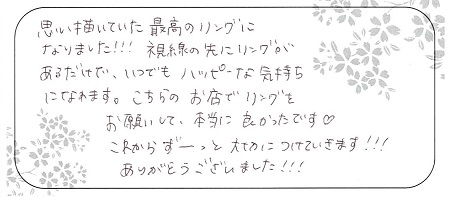 思い描いていた最高のリングに
なりました!!! 視線の先にリングが
あるだけで、いつでもハッピーな気持ち
になれます。こちらのお店でリングを
お願いして、本当に良かったです♡
これからずーっと大切につけていきます!!!
ありがとうございました!!!